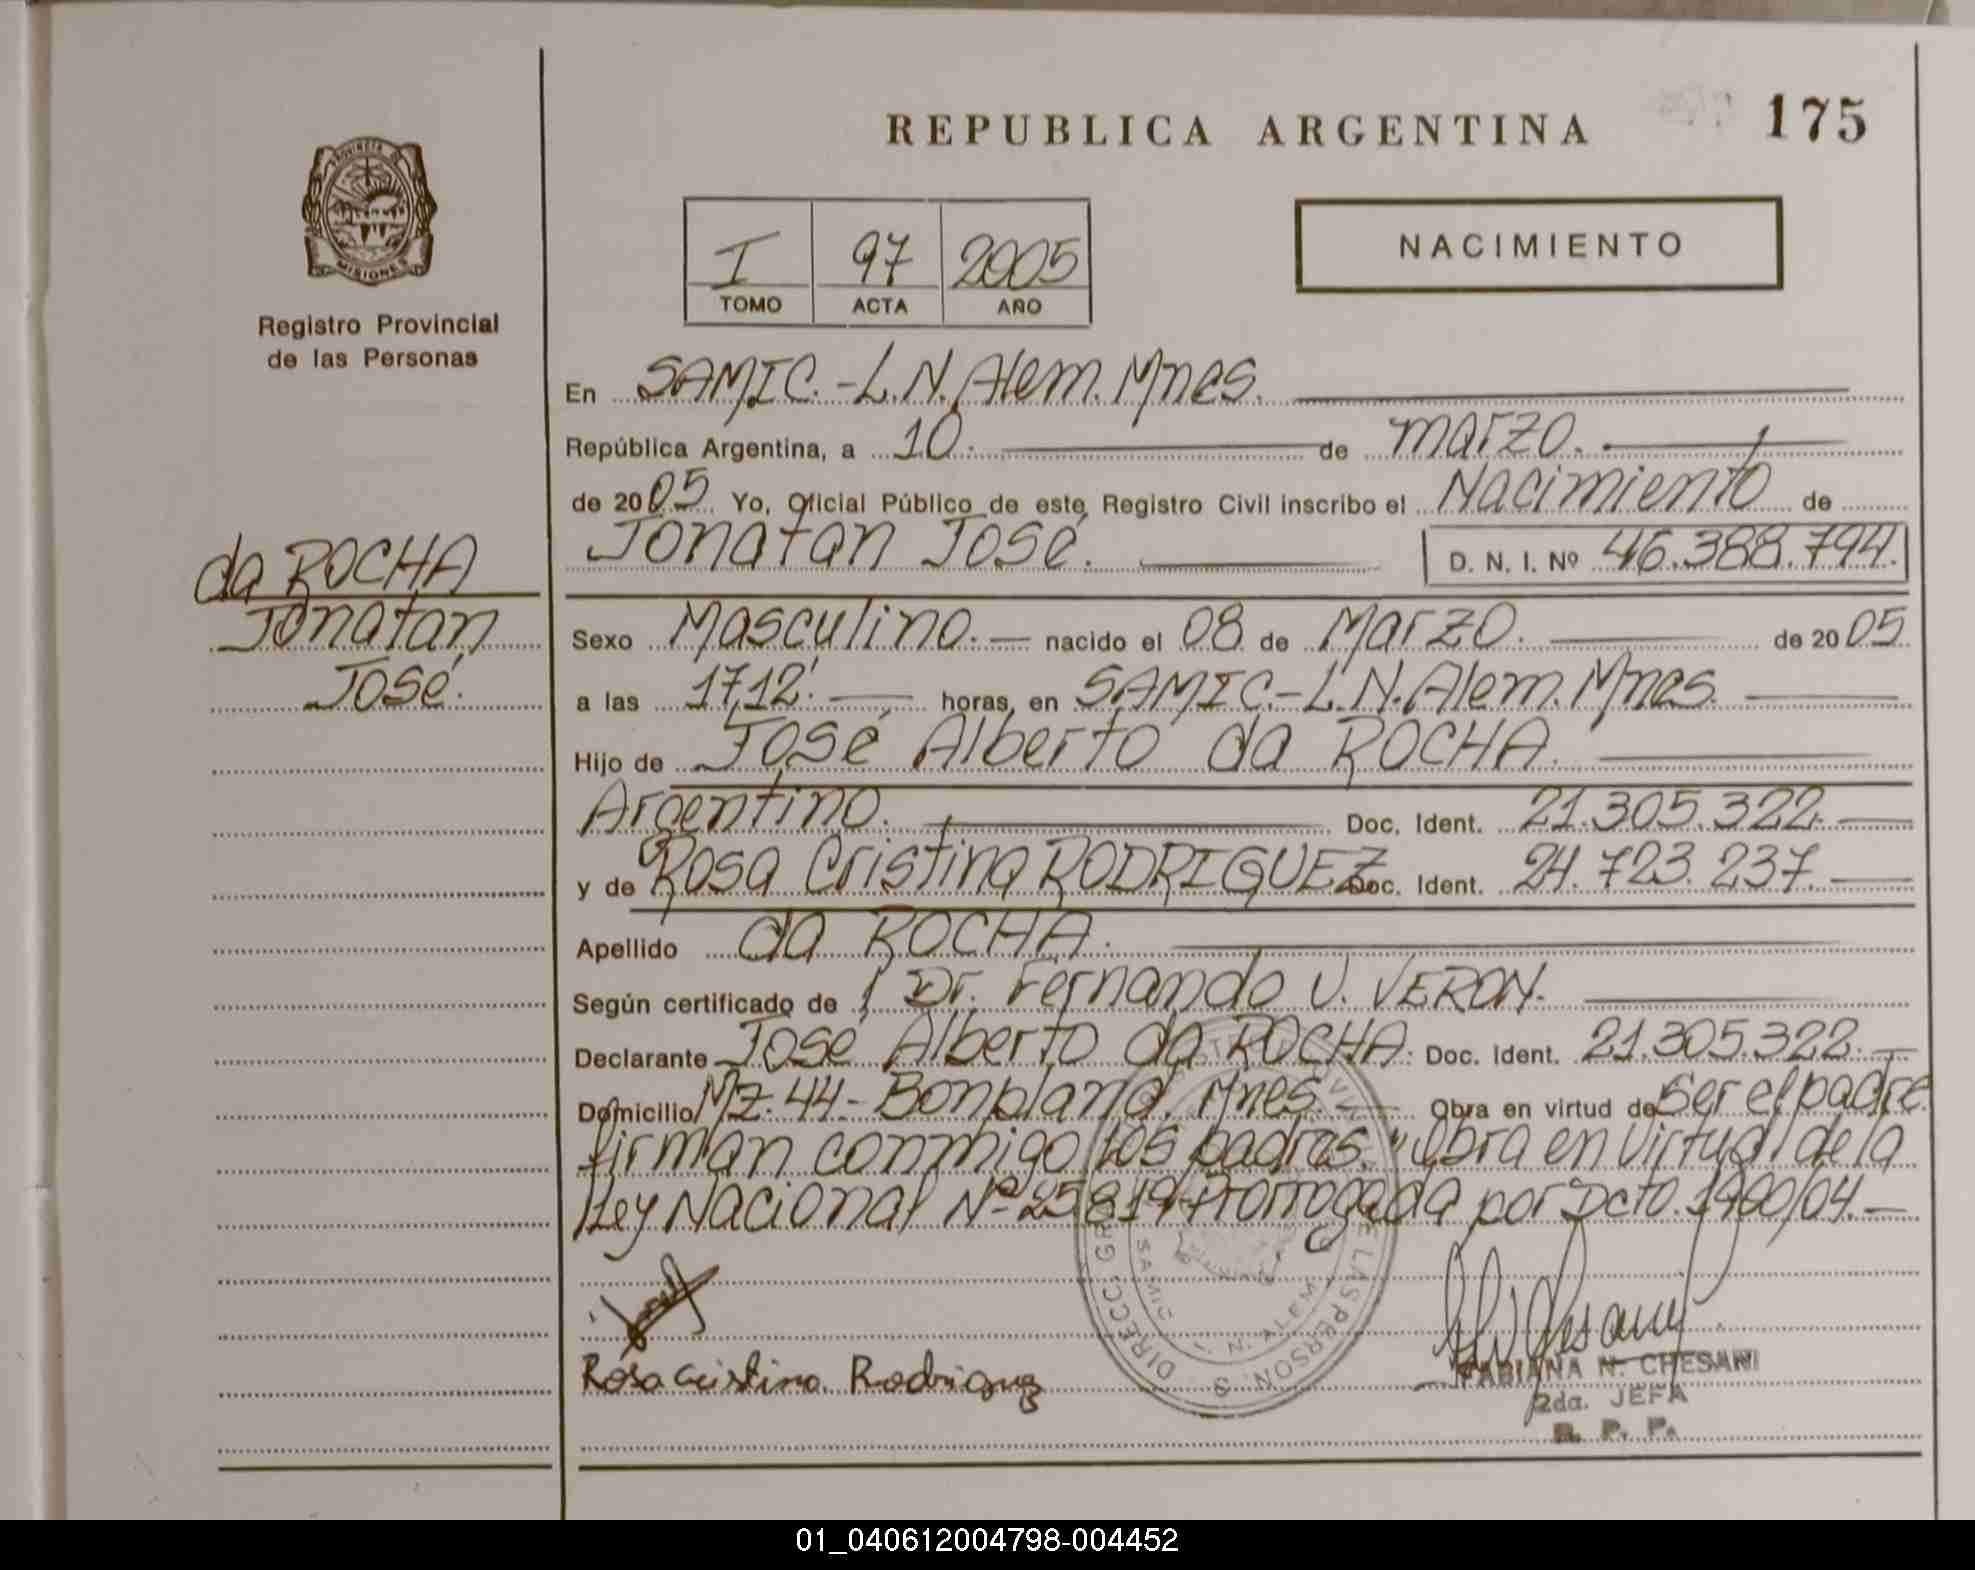 REPUBLICA ARGENTINA
175
PROVINCIA DE
MISIONES
Registro Provincial
de las Personas
I 97 2005
TOMO ACTA AÑO
NACIMIENTO
En SAMIC.-L.N.Alem.Mnes.
República Argentina, a 10. de marzo.
de 2005 Yo, Oficial Público de este Registro Civil inscribo el Nacimiento de
Jonatan José. D. N. I. Nº 46.388.794.
da ROCHA
Jonatan
José.
Sexo Masculino. nacido el 08 de Marzo. de 2005
a las 17,12'. horas, en SAMIC-L.N.Alem.Mnes.
Hijo de José Alberto da ROCHA.
Argentino. Doc. Ident. 21.305.322.
y de Rosa Cristina RODRIGUEZ Doc. Ident. 24.723.237.
Apellido da ROCHA.
Según certificado de Dr. Fernando U. VERON.
Declarante José Alberto da ROCHA. Doc. Ident. 21.305.322.
Domicilio Mz.44-Bonpland. Mnes. Obra en virtud de ser el padre
firman conmigo los padres. "Obra en virtud de la
Ley Nacional Nº 25819 Prorrogada por Dcto. 1980/04.
Rosa Cristina Rodriguez
FABIANA N. CHESANI
2da. JEFA
R. P. P.
N. ALEM
01_040612004798-004452